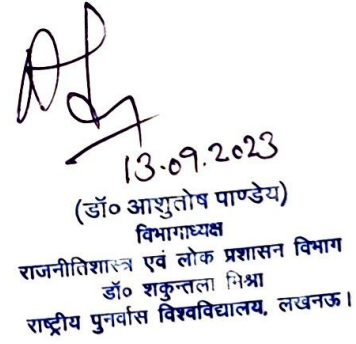 13.09.2023
(डॉ० आशुतोष पाण्डेय)
विभागाध्यक्ष
राजनीतिशास्त्र एवं लोक प्रशासन विभाग
डॉ० शकुन्तला मिश्रा
राष्ट्रीय पुनर्वास विश्वविद्यालय, लखनऊ।